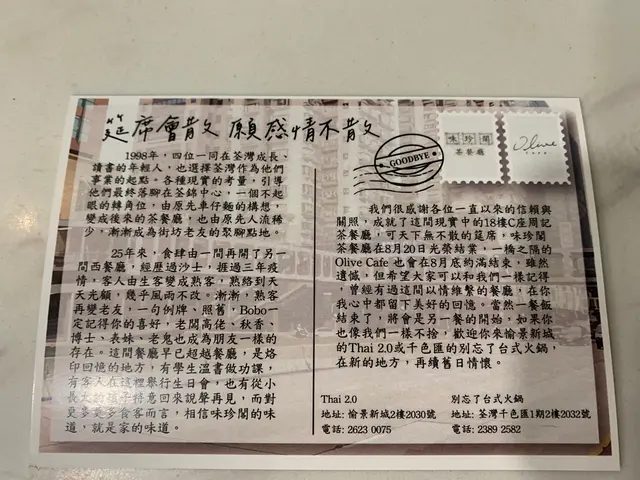 筵席會散 願感情不散
GOODBYE
味珍閣
茶餐廳
Olive
1998年，四位一同在荃灣成長、
讀書的年輕人，也選擇荃灣作為他們
事業的起點。各種現實的考量，引導
他們最終落腳在荃錦中心，一個不起
眼的轉角位，由原先車仔麵的構想，
變成後來的茶餐廳，也由原先人流稀
少，漸漸成為街坊老友的聚腳點地。
25年來，食肆由一間再開了另一
間西餐廳，經歷過沙士，捱過三年疫
情，客人由生客變成熟客，熟絡到天
天光顧，幾乎風雨不改。漸漸，熟客
再變老友，一句例牌、照舊，Bobo一
定記得你的喜好，老闆高佬、秋香、
博士、表妹、老鬼也成為朋友一樣的
存在。這間餐廳早已超越餐廳，是烙
印回憶的地方，有學生溫書做功課，
有客人在這裡舉行生日會，也有從小
長大的孩子特意回來說聲再見，而對
更多更多食客而言，相信味珍閣的味
道，就是家的味道。
我們很感謝各位一直以來的信賴與
關照，成就了這間現實中的18樓C座周記
茶餐廳，可天下無不散的筵席，味珍閣
茶餐廳在8月20日光榮結業，一橋之隔的
Olive Cafe 也會在8月底約滿結束，雖然
遺憾，但希望大家可以和我們一樣記得，
曾經有過這間以情維繫的餐廳，在你
我心中都留下美好的回憶。當然一餐飯
結束了，將會是另一餐的開始，如果你
也像我們一樣不捨，歡迎你來愉景新城
的Thai 2.0或千色匯的別忘了台式火鍋，
在新的地方，再續舊日情懷。
Thai 2.0
地址: 愉景新城2樓2030號
電話: 2623 0075
別忘了台式火鍋
地址: 荃灣千色匯1期2樓2032號
電話: 2389 2582